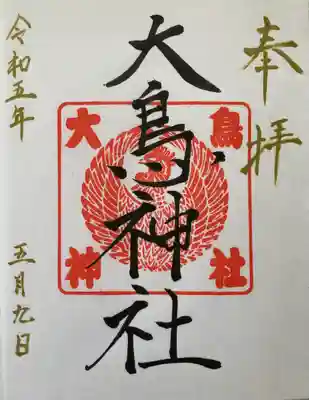 奉拝
大鳥神社
大鳥神社
令和五年
五月九日